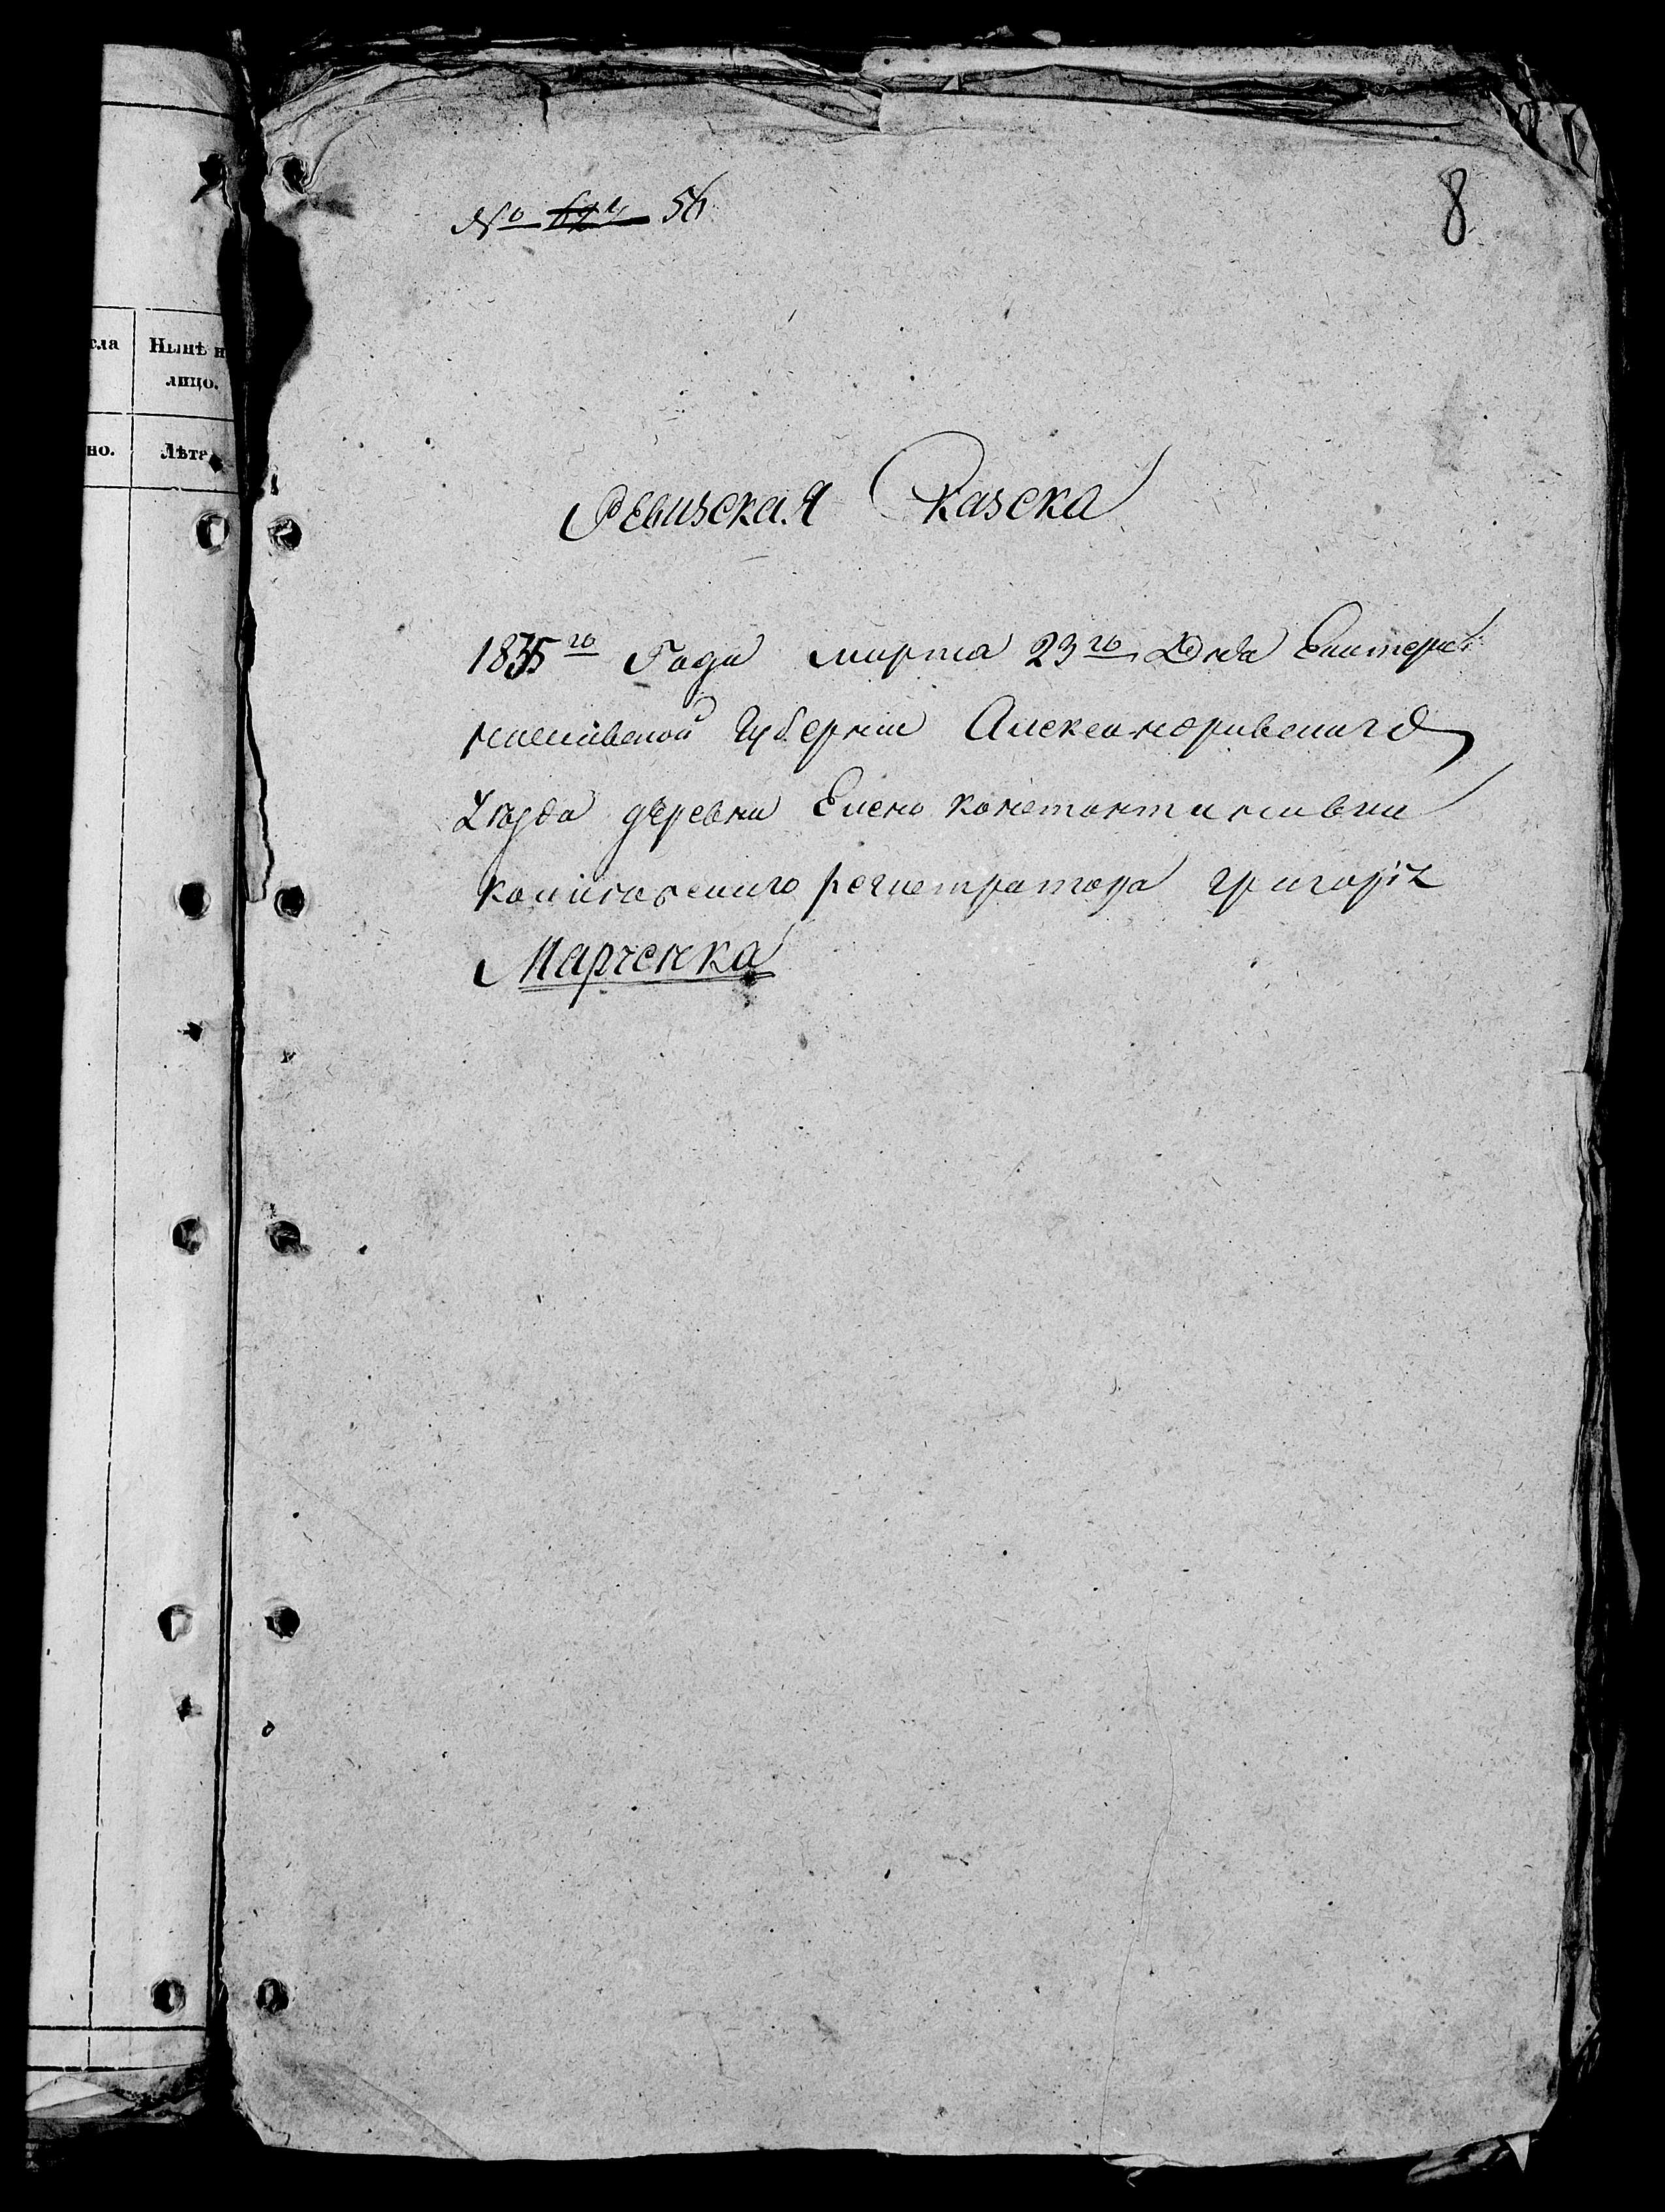 № 56
8
сла
Нынѣ н
лицо.
но.
Лѣта
Ревизская Сказска
1835го Года марта 23го Дня Екатери
нославской Губерніи Александривскаго
уѣзда деревни Елено константиновки
колижскаго регистратора григорія
Марченка